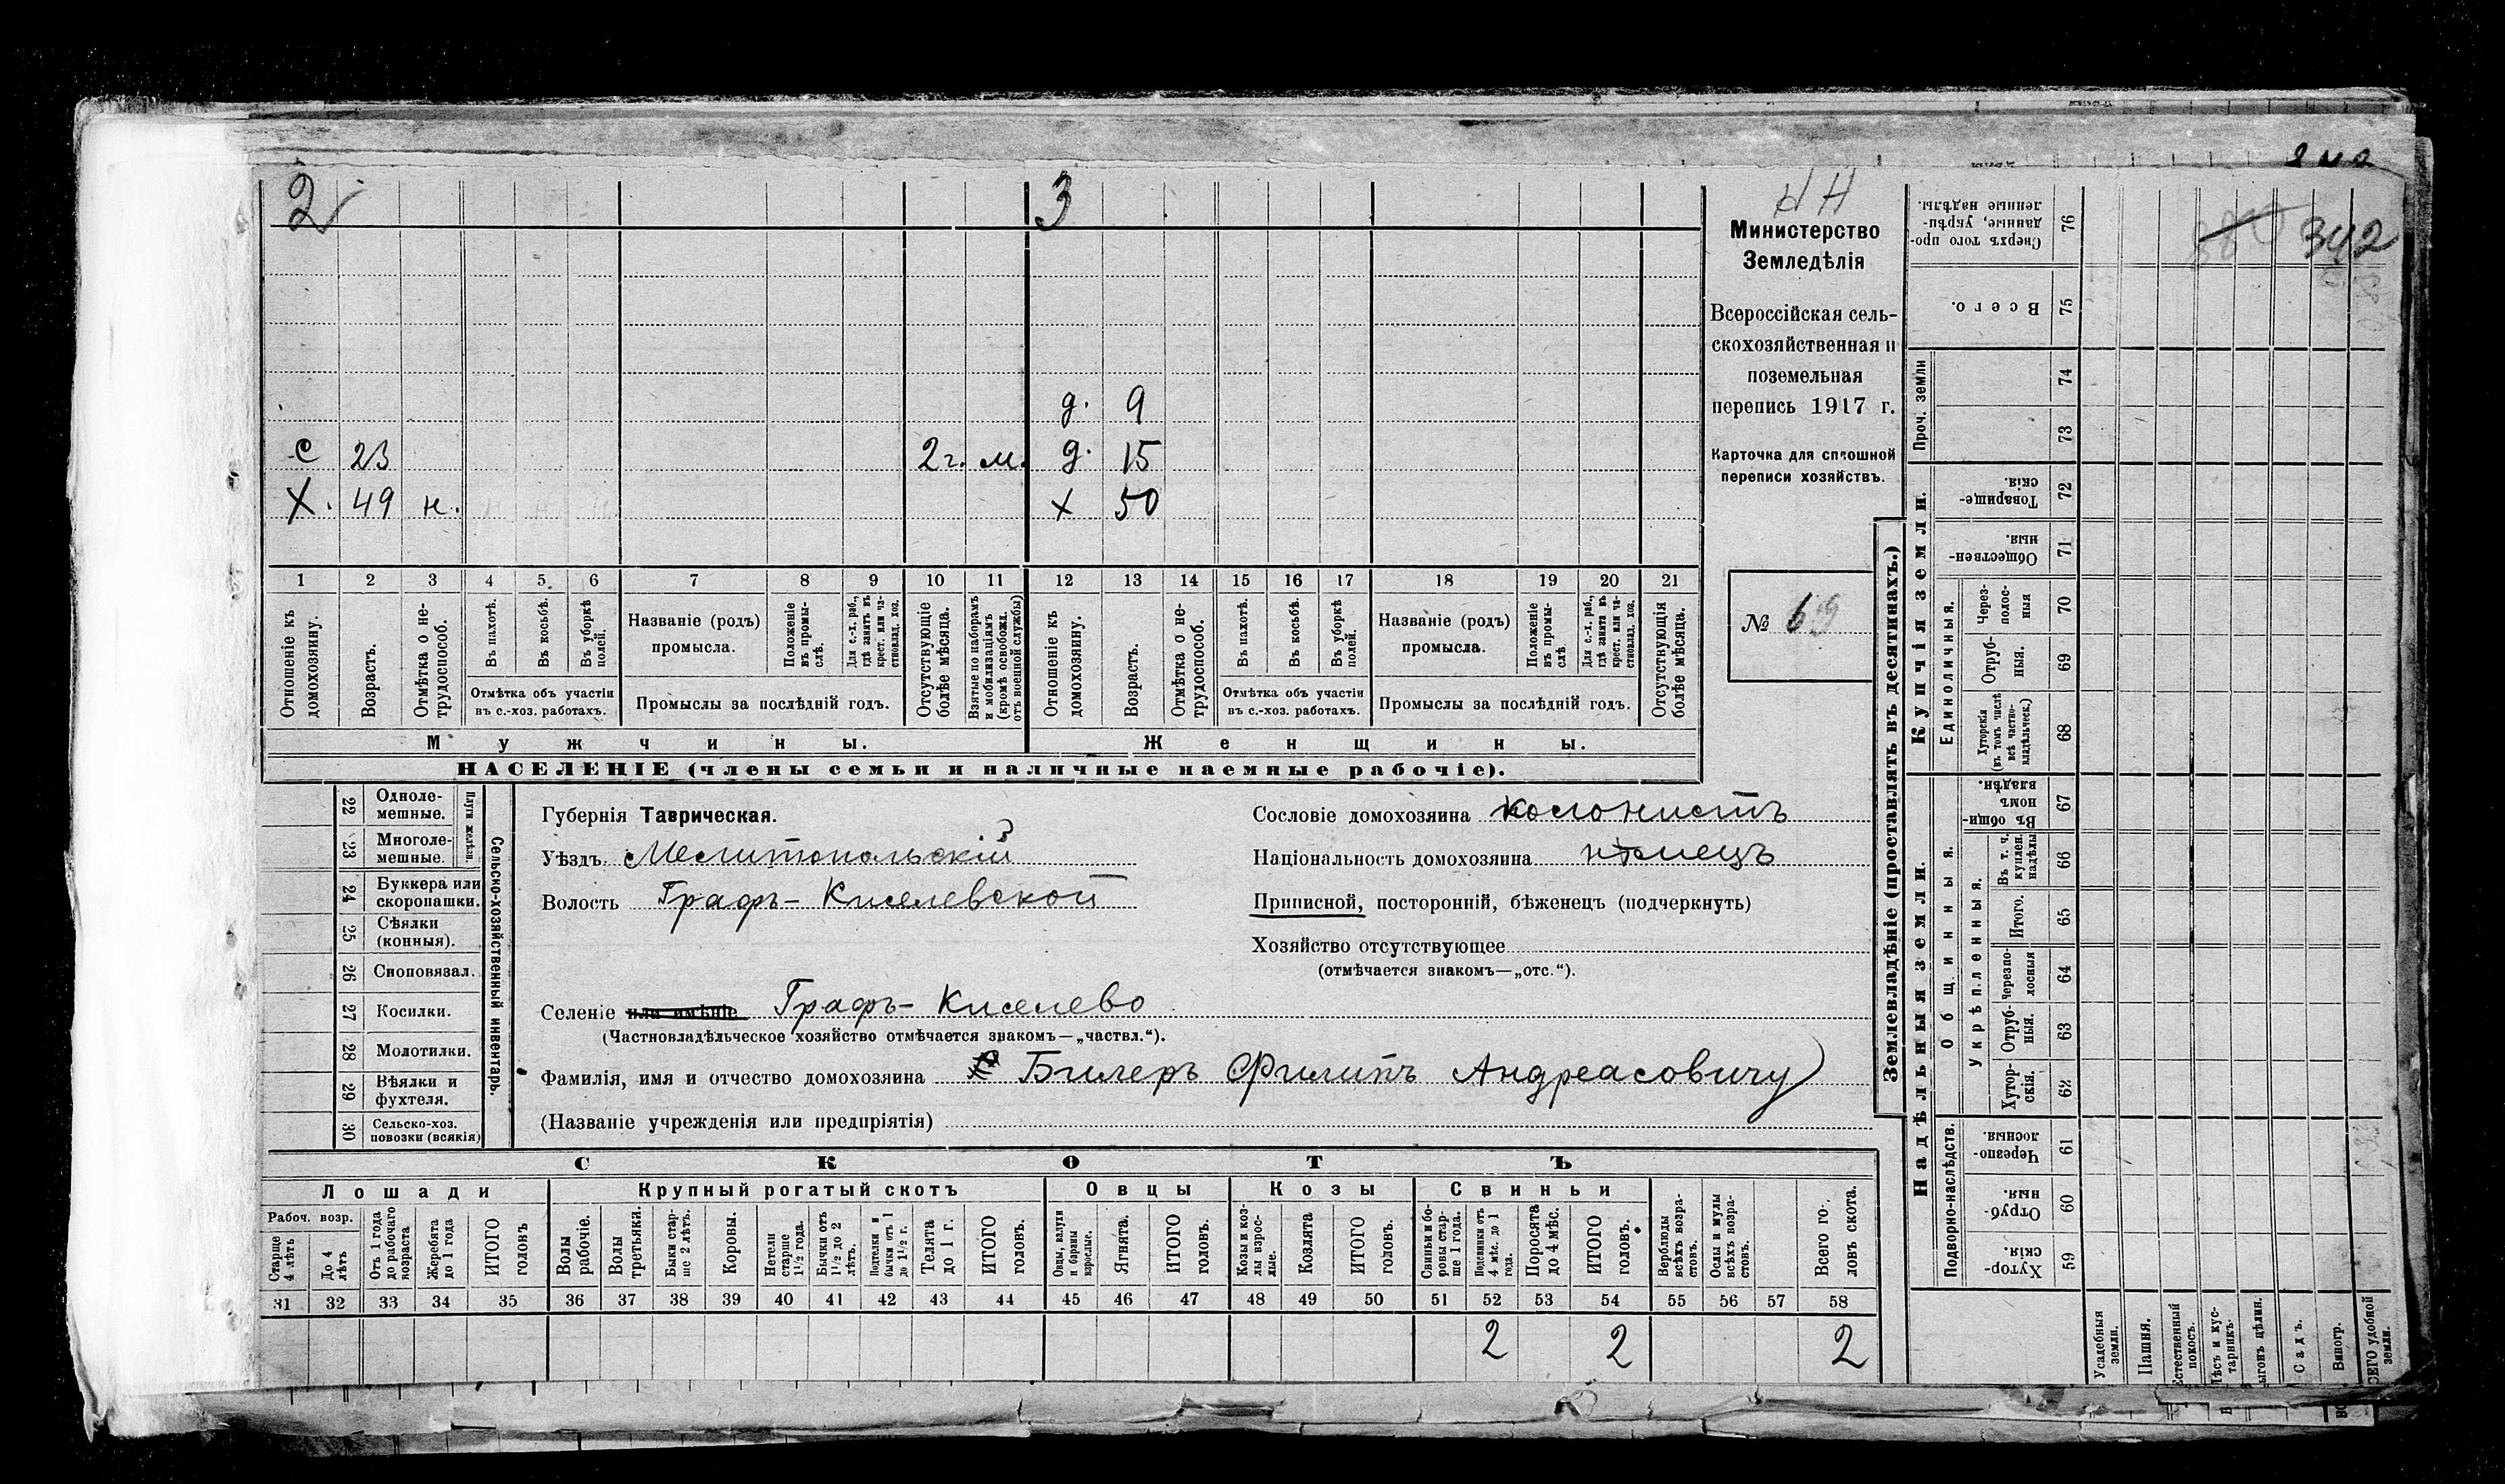 2 3
д. 9
с 23 2 г. м. д. 15
Х. 49 н. х 50
1 2 3 4 5 6 7 8 9 10 11 12 13 14 15 16 17 18 19 20 21
Отношеніе къ домохозяину.
Возрастъ.
Отмѣтка о не-
трудоспособ.
Въ пахотѣ.
Въ косьбѣ.
Въ уборкѣ полей.
Отмѣтка объ участіи
въ с.-хоз. работахъ.
Названіе (родъ)
промысла.
Положеніе въ промы-
слѣ.
Для с.-х. раб., гдѣ занятъ въ крест. или ча-
стновлад. хоз.
Промыслы за послѣдній годъ.
Отсутствующіе болѣе мѣсяца.
Взятые по наборамъ и мобилизаціямъ (кромѣ освобожд. отъ военной службы)
Отношеніе къ домохозяину.
Возрастъ.
Отмѣтка о не-
трудоспособ.
Въ пахотѣ.
Въ косьбѣ.
Въ уборкѣ полей.
Отмѣтка объ участіи
въ с.-хоз. работахъ.
Названіе (родъ)
промысла.
Положеніе въ промы-
слѣ.
Для с.-х. раб., гдѣ занята въ крест. или ча-
стновлад. хоз.
Промыслы за послѣдній годъ.
Отсутствующія болѣе мѣсяца.
Мужчины. Женщины.
НАСЕЛЕНІЕ (члены семьи и наличные наемные рабочіе).
НН
Министерство
Земледѣлія
Всероссійская сель-
скохозяйственная и
поземельная
перепись 1917 г.
Карточка для сплошной
переписи хозяйствъ.
№ 69
22 Одноле-
мешные.
23 Многоле-
мешные.
Плуги желѣзн.
24 Буккера или
скоропашки.
25 Сѣялки
(конныя).
26 Сноповязал.
27 Косилки.
28 Молотилки.
29 Вѣялки и
фухтеля.
30 Сельско-хоз.
повозки (всякія)
Сельско-хозяйственный инвентарь.
Губернія Таврическая.
Уѣздъ Мелитопольскій
Волость Графъ-Киселевской
Селеніе или имѣніе Графъ-Киселево
(Частновладѣльческое хозяйство отмѣчается знакомъ—„частвл.“).
Фамилія, имя и отчество домохозяина Билеръ Филипъ Андреасовичу
(Названіе учрежденія или предпріятія)
Сословіе домохозяина колонистъ
Національность домохозяина нѣмецъ
Приписной, посторонній, бѣженецъ (подчеркнуть)
Хозяйство отсутствующее
(отмѣчается знакомъ—„отс.“).
СКОТЪ
Лошади Крупный рогатый скотъ Овцы Козы Свиньи
Рабоч. возр.
Старше 4 лѣтъ
До 4 лѣтъ
Отъ 1 года до рабочаго возраста
Жеребята до 1 года
ИТОГО головъ
Волы рабочіе.
Волы третьяки.
Быки стар-
ше 2 лѣтъ.
Коровы.
Нетели старше 1½ года.
Бычки отъ 1½ до 2 лѣтъ.
Подтелки и бычки отъ 1 до 1½ г.
Телята до 1 г.
ИТОГО головъ.
Овцы, валухи и бараны взрослые.
Ягнята.
ИТОГО головъ.
Козы и коз-
лы взрос-
лые.
Козлята
ИТОГО головъ.
Свиньи и бо-
ровы стар-
ше 1 года.
Подсвинки отъ 4 мѣс. до 1 года.
Поросята до 4 мѣс.
ИТОГО головъ.
Верблюды всѣхъ возра-
стовъ.
Ослы и мулы всѣхъ возра-
стовъ.
Всего го-
ловъ скота.
31 32 33 34 35 36 37 38 39 40 41 42 43 44 45 46 47 48 49 50 51 52 53 54 55 56 57 58
2 2 2
Землевладѣніе (проставлять въ десятинахъ.)
Купчія земли.
Надѣльныя земли.
342
Сверхъ того про-
данные, укрѣп-
ленные надѣлы. 76
Всего. 75
Проч. земли 74
73
Товарище-
скія. 72
Обществен-
ныя. 71
Единоличныя.
Через-
полос-
ныя 70
Отруб-
ныя. 69
Хуторскія (въ томъ числѣ всѣ частно-
владѣльческ.) 68
Общинныя.
Въ общи-
номъ владѣн. 67
Укрѣпленныя.
Въ т. ч. куплен. надѣлы 66
Итого. 65
Черезпо-
лосныя 64
Отруб-
ныя. 63
Хутор-
скія. 62
Подворно-наслѣдств.
Черезпо-
лосныя. 61
Отруб-
ныя. 60
Хутор-
скія. 59
Усадебныя земли.
Пашня.
Естественный покосъ.
Лѣсъ и кус-
тарникъ.
Выгонъ цѣлин.
Садъ.
Виногр.
ВСЕГО удобной земли.